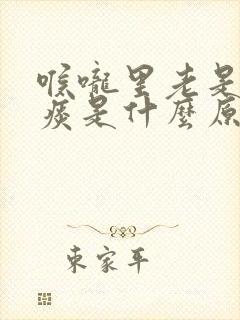 喉嚨里老是
痰是什麼原
東家平